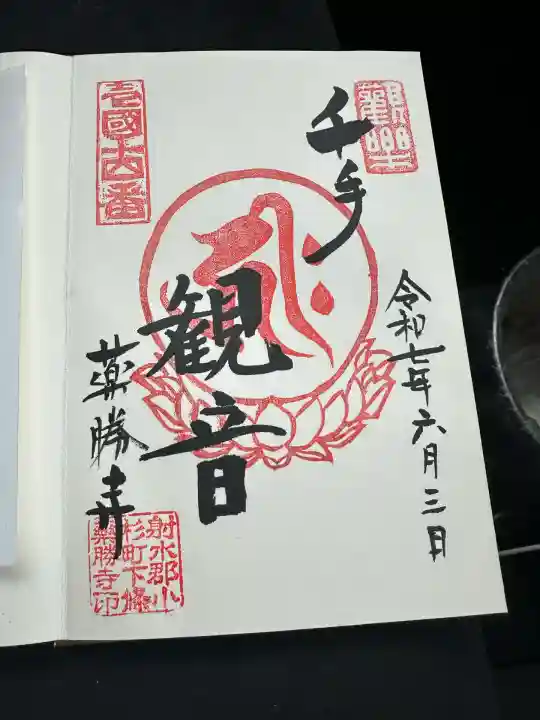 千手
観音
令和七年六月三日
薬勝寺
射水郡小
杉町下條
薬勝寺印